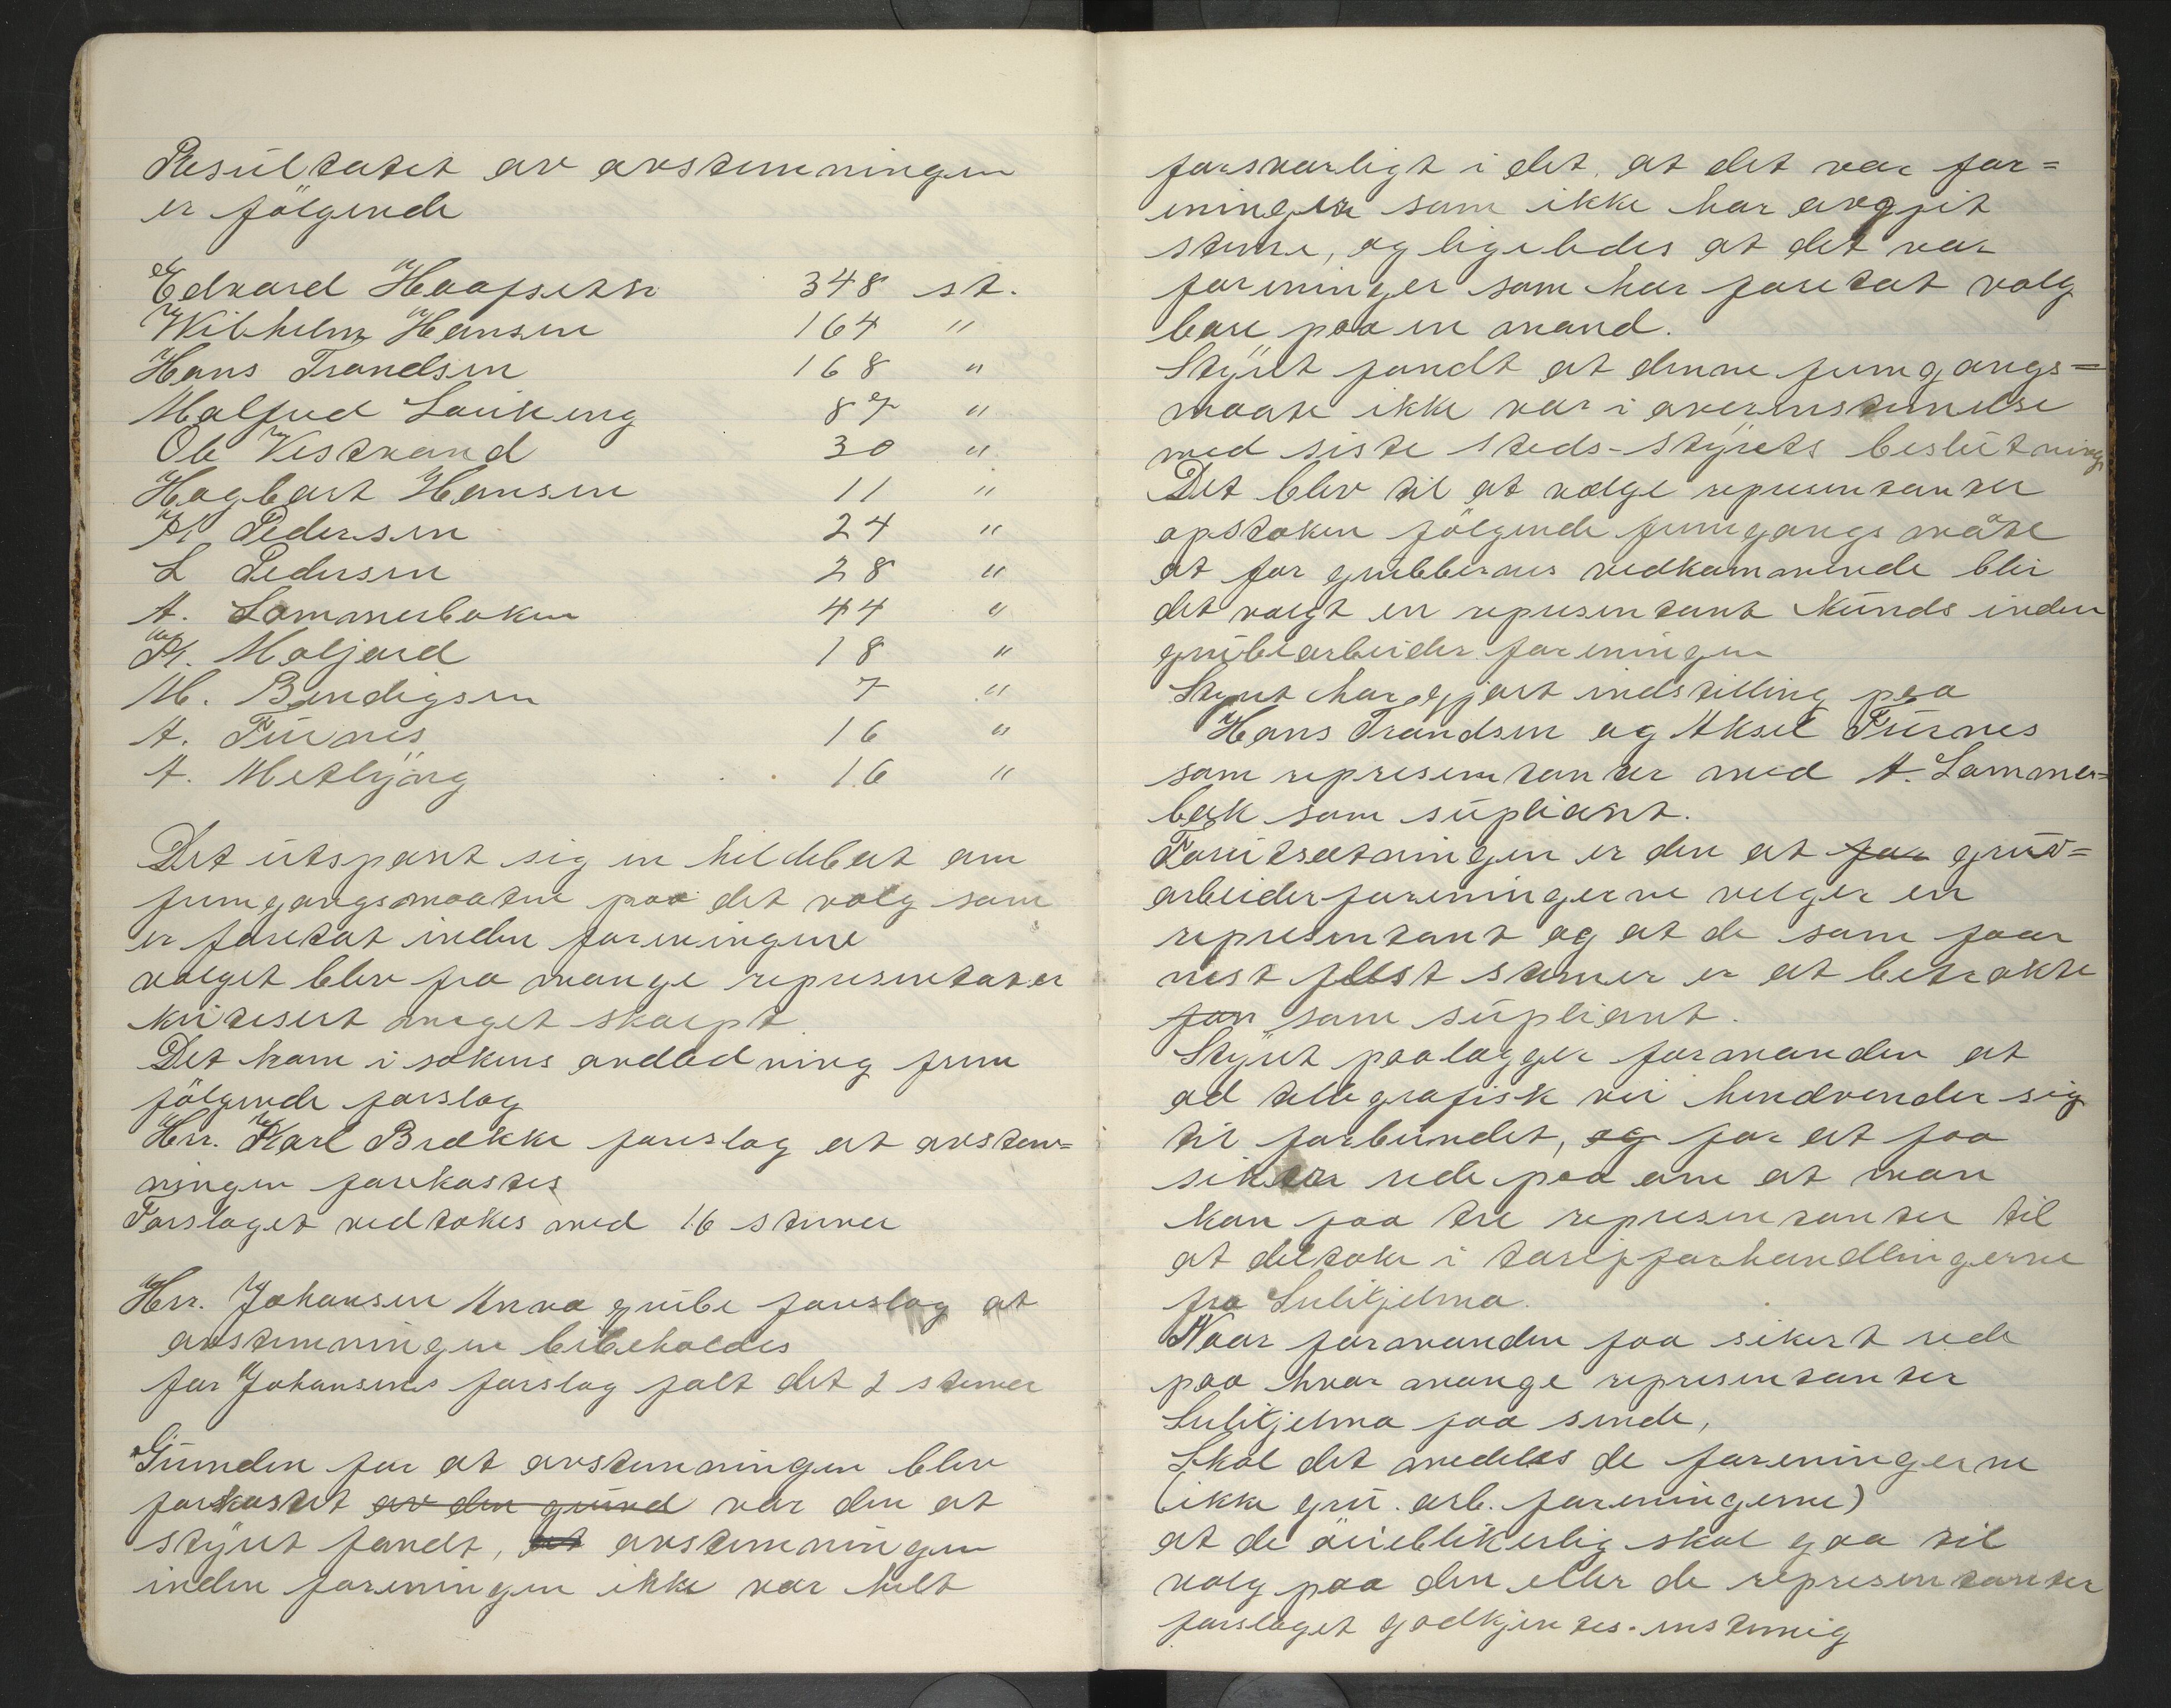 Resultatet av avstemningen
er følgende
Edvard Haafseth 348 st.
Wilhelm Hansen 164 "
Hans Trondsen 168 "
Malfred 87 "
Ole Vestvand 30 "
Hagbart Hansen 11 "
K Pedersen 24 "
L Pedersen 28 "
A. Lommerbaken 44 "
K. Moljord 18 "
M. Bendigsen 7 "
A. Furnes 16 "
A. Metbjørg 16 "
Det utspant sig en hel debat om
fremgangsmaaten paa det valg som
er foretat inden foreningene
valget blev fra mange representater
kritesert meget skarpt
Det kom i sakens andledning frem
følgende forslag
Hrr. Karl Brække foreslog at avstem=
ningen forkastes
Forslaget vedtokes med 16 stemer
Hrr. Johansen Anna grube foreslog at
avstemningen bibeholdes
for Johansens forslag falt det 2 stemer
Grunden for at avstemningen blev
forkastet av den grund var den at
styret fandt, at avstemningen
inden foreningen ikke var helt
forsvarligt i det, at det var for=
eninger som ikke har avgjit
steme, og ligeledes at det var
foreninger som har foretat valg
bare paa en mand.
Styret fandt at denne fremgangs=
maate ikke var i overenstemelse
med siste steds-styrets beslutning
Det blev til at vælge representanter
opstaken følgende fremgangs måte
at for grubbernes vedkommende blir
det valgt en representant kunds inden
grubearbeider foreningen
Styret har gjort indstilling paa
Hans Trondsen og Aksel Furnes
som representanter med A. Lommer=
bak som supliant.
Forutsætningen er den at for gruv=
arbeiderforeningerne velger en
representant og at de som faar
nest flest stemer er at betrakte
fon som supliant.
Styret paalægger formanden at
ad tellegrafisk vei hendvender sig
til forbundet, og for at faa
sikker rede paa om at man
kan faa tre representanter til
at deltake i tarifforhandlingerne
fra Sulitjelma.
Naar formanden faa sikert rede
paa hvor mange representanter
Sulitjelma faa sende,
Skal det medeles de foreningerne
(ikke gru. arb. foreningerne)
at de øieblikkerlig skal gaa til
valg paa den eller de representanter
forslaget godkjentes. enstemig